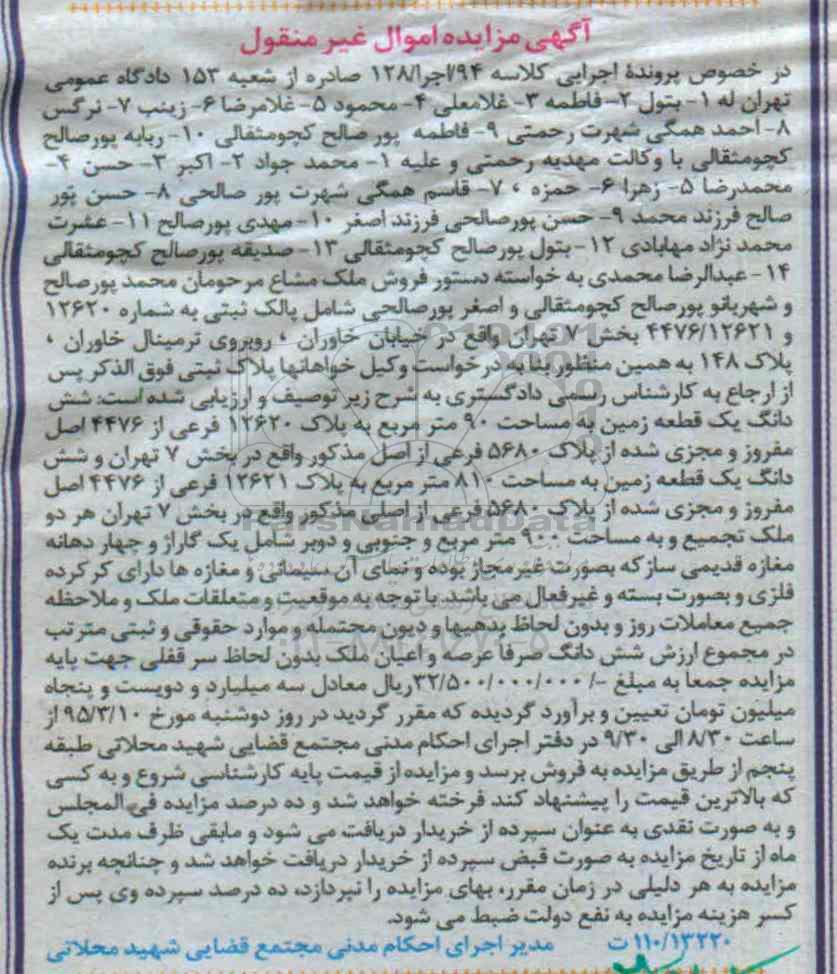 آگهی مزایده اموال غیر منقول
در خصوص پروندهٔ اجرایی کلاسه ۹۴/اجرا/۱۲۸ صادره از شعبه ۱۵۳ دادگاه عمومی
تهران له ۱- بتول ۲- فاطمه ۳- غلامعلی ۴- محمود ۵- غلامرضا ۶- زینب ۷- نرگس
۸- احمد همگی شهرت رحمتی ۹- فاطمه پور صالح کچومثقالی ۱۰- ربابه پورصالح
کچومثقالی با وکالت مهدیه رحمتی و علیه ۱- محمد جواد ۲- اکبر ۳- حسن ۴-
محمدرضا ۵- زهرا ۶- حمزه ، ۷- قاسم همگی شهرت پور صالحی ۸- حسن پور
صالح فرزند محمد ۹- حسن پورصالحی فرزند اصغر ۱۰- مهدی پورصالح ۱۱- عشرت
محمد نژاد مهابادی ۱۲- بتول پورصالح کچومثقالی ۱۳- صدیقه پورصالح کچومثقالی
۱۴- عبدالرضا محمدی به خواسته دستور فروش ملک مشاع مرحومان محمد پورصالح
و شهربانو پورصالح کچومثقالی و اصغر پورصالحی شامل پالک ثبتی به شماره ۱۲۶۲۰
و ۴۴۷۶/۱۲۶۲۱ بخش ۷ تهران واقع در خیابان خاوران ، روبروی ترمینال خاوران ،
پلاک ۱۴۸ به همین منظور بنا به درخواست وکیل خواهانها پلاک ثبتی فوق الذکر پس
از ارجاع به کارشناس رسمی دادگستری به شرح زیر توصیف و ارزیابی شده است: شش
دانگ یک قطعه زمین به مساحت ۹۰ متر مربع به پلاک ۱۲۶۲۰ فرعی از ۴۴۷۶ اصل
مفروز و مجزی شده از پلاک ۵۶۸۰ فرعی از اصل مذکور واقع در بخش ۷ تهران و شش
دانگ یک قطعه زمین به مساحت ۸۱۰ متر مربع به پلاک ۱۲۶۲۱ فرعی از ۴۴۷۶ اصل
مفروز و مجزی شده از پلاک ۵۶۸۰ فرعی از اصلی مذکور واقع در بخش ۷ تهران هر دو
ملک تجمیع و به مساحت ۹۰۰ متر مربع و جنوبی و دوبر شامل یک گاراژ و چهار دهانه
مغازه قدیمی ساز که بصورت غیر مجاز بوده و نمای آن سیمانی و مغازه ها دارای کرکرده
فلزی و بصورت بسته و غیرفعال می باشد. با توجه به موقعیت و متعلقات ملک و ملاحظه
جمیع معاملات روز و بدون لحاظ بدهیها و دیون محتمله و موارد حقوقی و ثبتی مترتب
در مجموع ارزش شش دانگ صرفاً عرصه و اعیان ملک بدون لحاظ سر قفلی جهت پایه
مزایده جمعاً به مبلغ -/۳۲/۵۰۰/۰۰۰/۰۰۰ ریال معادل سه میلیارد و دویست و پنجاه
میلیون تومان تعیین و برآورد گردیده که مقرر گردید در روز دوشنبه مورخ ۹۵/۳/۱۰ از
ساعت ۸/۳۰ الی ۹/۳۰ در دفتر اجرای احکام مدنی مجتمع قضایی شهید محلاتی طبقه
پنجم از طریق مزایده به فروش برسد و مزایده از قیمت پایه کارشناسی شروع و به کسی
که بالاترین قیمت را پیشنهاد کند فرخته خواهد شد و ده درصد مزایده فی المجلس
و به صورت نقدی به عنوان سپرده از خریدار دریافت می شود و مابقی ظرف مدت یک
ماه از تاریخ مزایده به صورت قبض سپرده از خریدار دریافت خواهد شد و چنانچه برنده
مزایده به هر دلیلی در زمان مقرر، بهای مزایده را نپردازد، ده درصد سپرده وی پس از
کسر هزینه مزایده به نفع دولت ضبط می شود.
۱۱۰/۱۳۲۲۰ ت مدیر اجرای احکام مدنی مجتمع قضایی شهید محلاتی
ParsNamadData